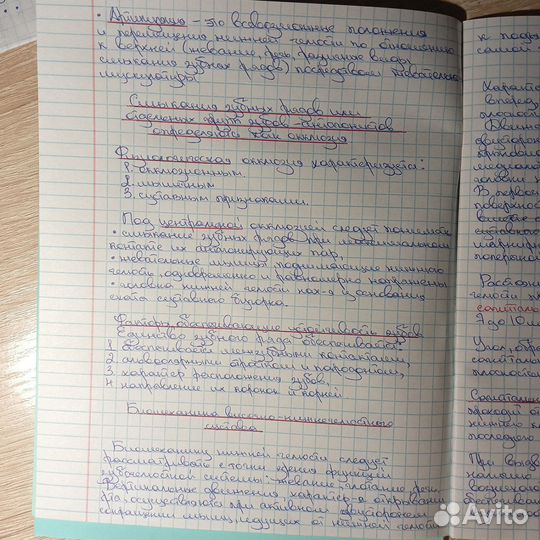 • Артикуляция – это всевозможные положения
и перемещения нижней челюсти по отношению
к верхней (жевание, речь, различные виды
смыкания зубных рядов) посредством жевательной
мускулатуры.
Смыкания зубных рядов или
отдельных групп зубов-антагонистов
определяют как окклюзия
Физиологическая окклюзия характеризуется:
1. окклюзионным.
2. мышечным
3. суставным признаками.
Под центральной окклюзией следует понимать
• смыкание зубных рядов при максимальном
контакте их антагонирующих пар,
• жевательные мышцы, поднимающие нижнюю
челюсть, одновременно и равномерно напряжены
• головка нижней челюсти нах-я у основания
ската суставного бугорка.
Факторы, обеспечивающие устойчивость зубов
Единство зубного ряда обеспечивается
1 обеспечивается межзубными контактами,
2. альвеолярным отростком и пародонтом,
3. характер расположения зубов,
4 направление их коронок и корней
Биомеханика височно-нижнечелюстного
сустава
Биомеханику нижней челюсти следует
рассматривать с точки зрения функции
зубочелюстной системы: жевание, глотание, речь.
Вертикальные движения характер-я открыванием
рта, осуществляются при активном двустороннем
сокращении мышц, идущих от нижней челюсти
к подъ
самой
Характе
вперед
плоскост
Движен
двусторон
головки н
В первой
поверхнос
суставного
шарнирн
Расстоян
челюсти пр
7 до 10 м
Угол, обра
плоскост
проходит от
нижнего к
последнего
При выдв
Avito